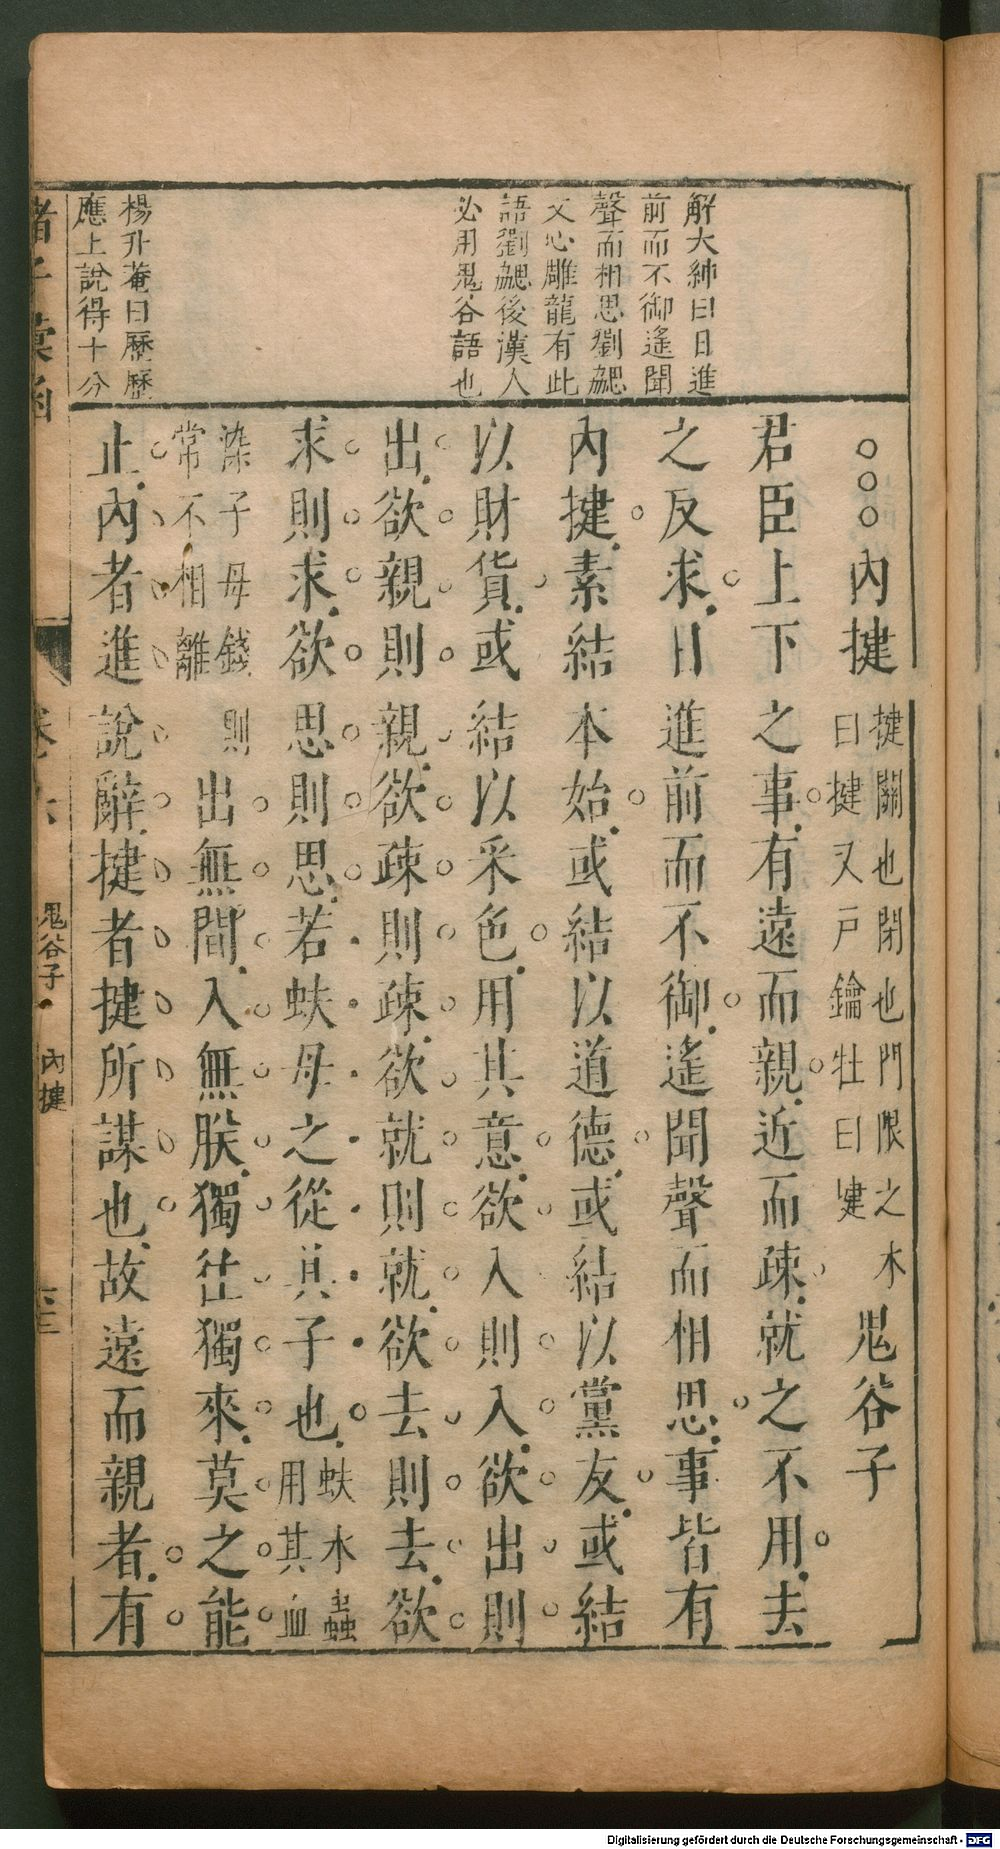 解大紳曰日進
前而不御遙聞
聲而相思劉勰
文心雕龍有此
語劉勰後漢人
必用鬼谷語也
楊升菴曰歷歷
應上說得十分
○○○內揵
揵關也閉也門限之木
曰揵又戸鑰牡曰㨩
鬼谷子
君臣上下之事有遠而親近而疎就之不用去
之反求日進前而不御遙聞聲而相思事皆有
內揵素結本始或結以道德或結以黨友或結
以財貨或結以采色用其意欲入則入欲出則
出欲親則親欲疎則疎欲就則就欲去則去欲
求則求欲思則思若蚨母之從其子也
蚨水蟲
用其血
染子母錢則
常不相離
出無間入無朕獨往獨來莫之能
止內者進說辭揵者揵所謀也故遠而親者有
諸子彙函
卷
鬼谷子 內揵
Digitalisierung gefördert durch die Deutsche Forschungsgemeinschaft - DFG